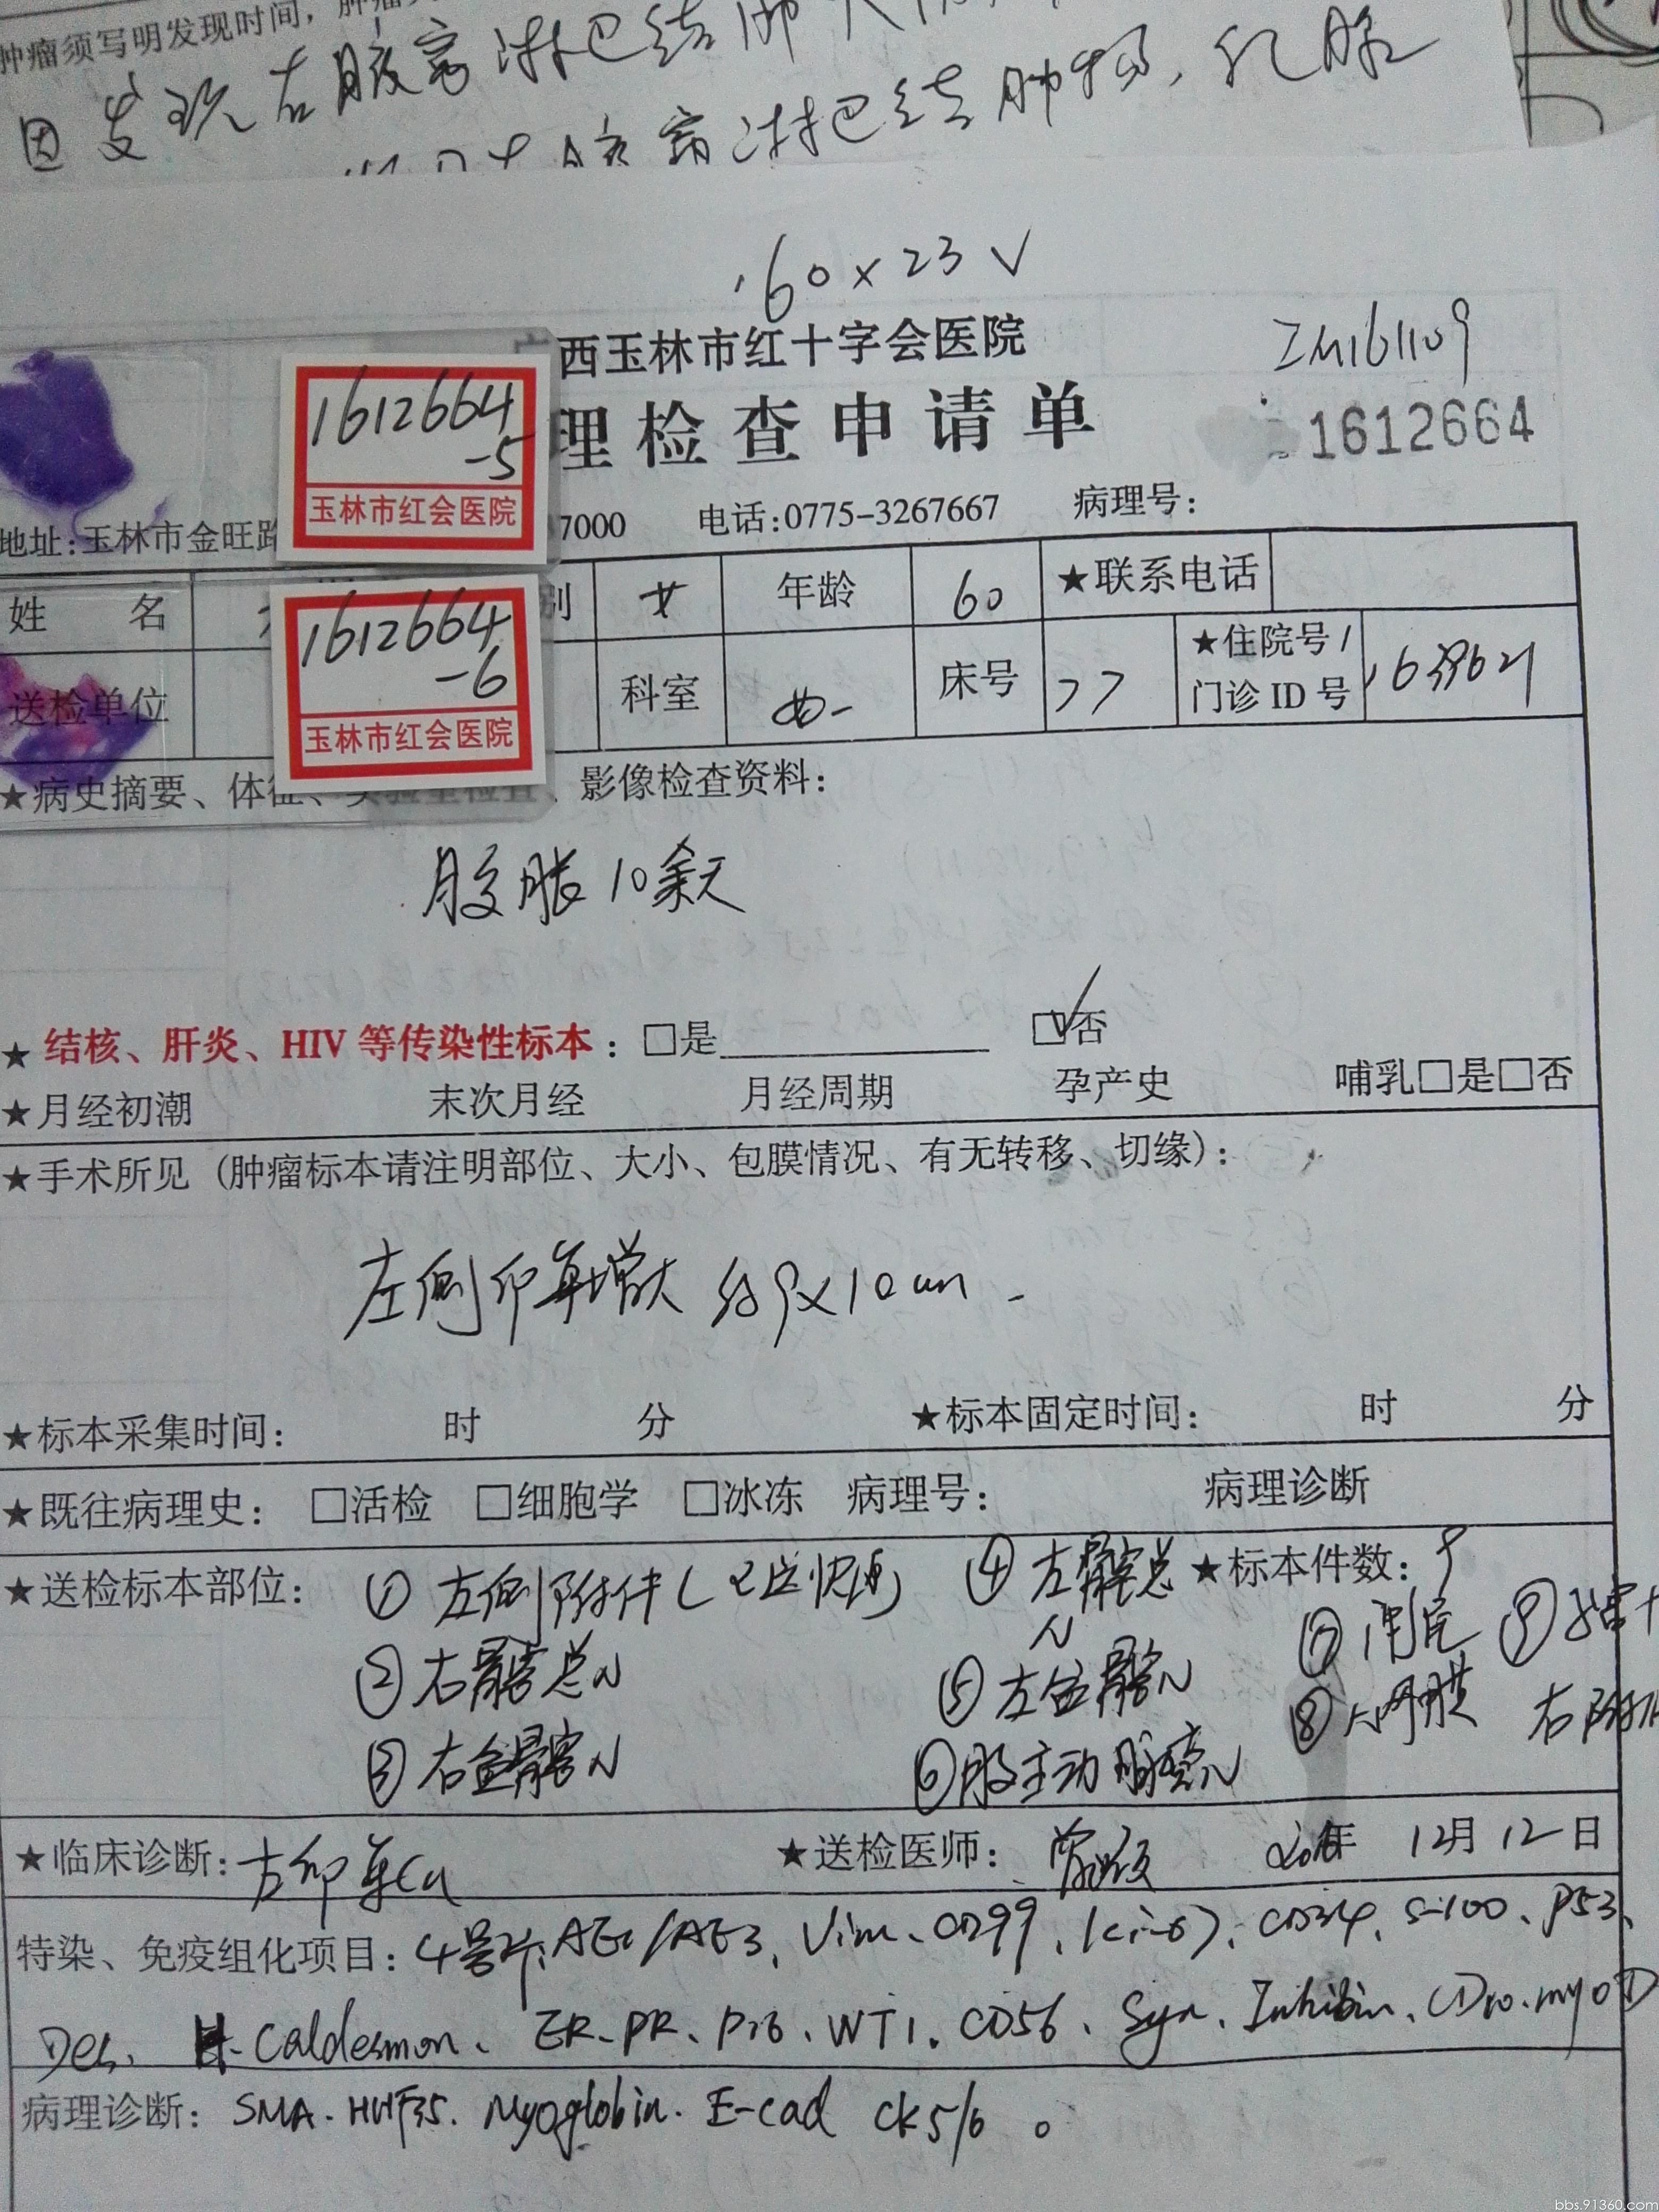 肿瘤须写明发现时间，肿瘤
因发现右腋窝淋巴结肿大
腋窝淋巴结肿物，乳腺
160×23 √
西玉林市红十字会医院
ZM161109
理检查申请单
1612664
1612664
-5
玉林市红会医院
地址:玉林市金旺路
7000 电话:0775-3267667 病理号:
姓 名 别 女 年龄 60 ★联系电话
1612664
-6
玉林市红会医院
送检单位 科室 妇一 床号 77 ★住院号/门诊ID号
★病史摘要、体征、实验室检查、影像检查资料:
腹胀10余天
★ 结核、肝炎、HIV等传染性标本: □是 □否 √
★月经初潮 末次月经 月经周期 孕产史 哺乳□是□否
★手术所见 (肿瘤标本请注明部位、大小、包膜情况、有无转移、切缘):
左侧卵巢增大 约9×10cm
★标本采集时间: 时 分 ★标本固定时间: 时 分
★既往病理史: □活检 □细胞学 □冰冻 病理号: 病理诊断
★送检标本部位: ① 左侧附件(已送快速) ④ 左髂总N ★标本件数: 9
② 右髂总N ⑤ 左盆髂N ⑦ ⑨ 子宫+右附件
③ 右盆髂N ⑥ 腹主动脉旁N ⑧ 大网膜
★临床诊断: 左卵巢Ca ★送检医师: 2016年 12月12日
特染、免疫组化项目: 4号片:AE1/AE3、Vim、CD99、Ki-67、CD34、S-100、P53、
Des、H-Caldesmon、ER、PR、P16、WT1、CD56、Syn、Inhibin、CD10、myoD
病理诊断: SMA、HHF35、Myoglobin、E-cad CK5/6。
bbs.91360.com